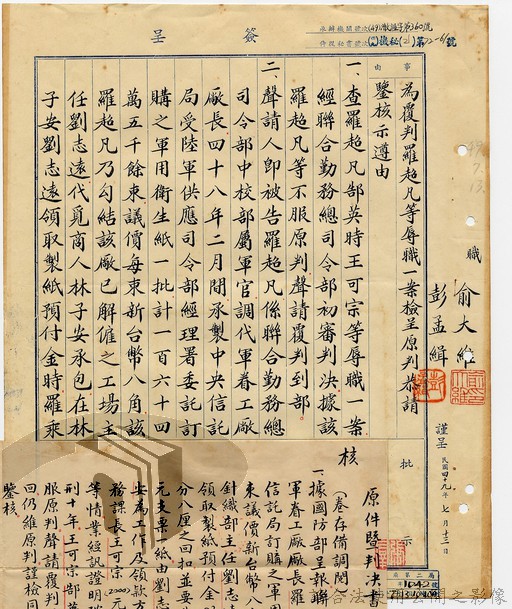 簽呈
事由
為覆判羅超凡等辱職一案檢呈原判恭請
鑒核示遵由
一、查羅超凡郜英時王可宗等辱職一案
經聯合勤務總司令部初審判決據該
羅超凡等不服原判聲請覆判到部
二、聲請人即被告羅超凡係聯合勤務總
司令部中校部屬軍官調代軍眷工廠
廠長四十八年二月間承製中央信託
局受陸軍供應司令部經理署委託訂
購之軍用衛生紙一批計一百六十四
萬五千餘束議價每束新台幣八角該
羅超凡乃勾結該廠已解僱之工場主
任劉志遠代覓商人林子安承包在林
子安劉志遠領取製紙預付金時羅乘
職
俞大維
彭孟緝
謹呈
民國四十九年七月十三日
批示
核
原件暨判決
(卷存備調閱
一、據國防部呈報聯
軍眷工廠廠長羅
信託局訂購之軍用
束議價新台幣八
針織部主任劉志
領取製紙預付金
分八厘之回扣並要
元支票一紙由劉志
安為工作及領款方
務課長王可宗2000元
等情業經訊證明
刑十年王可宗部
服原判聲請覆判
回仍維原判謹檢同
鑒核